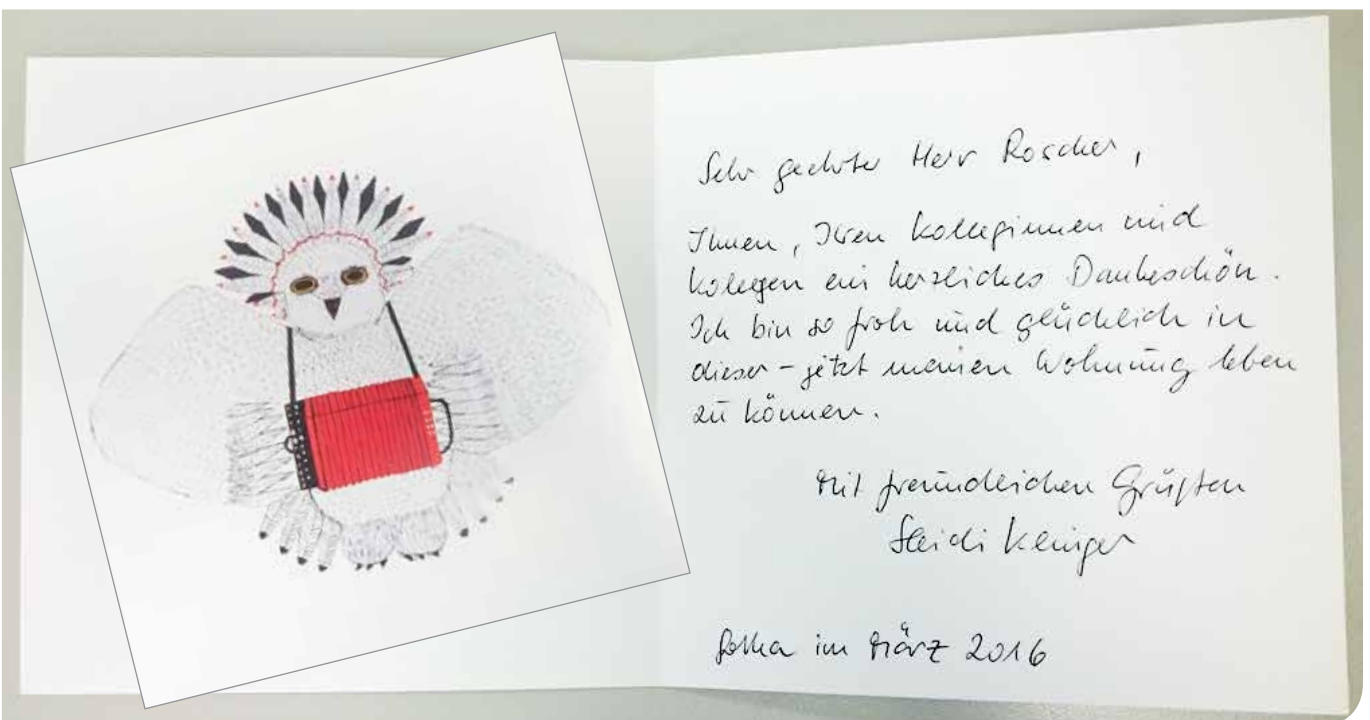 Sehr geehrter Herr Roscher,
Ihnen, Ihren Kolleginnen und
Kollegen ein herzliches Dankeschön.
Ich bin so froh und glücklich in
dieser – jetzt meinen Wohnung leben
zu können.
Mit freundlichen Grüßen
Heidi
Gotha im März 2016